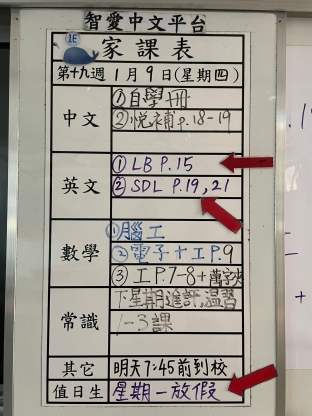 智愛中文平台
1E
家課表
第十九週 1月9日(星期四)
中文
①自學冊
②悅補 P.18-19
英文
① LB P.15
② SDL P.19,21
數學
①腦工
②電子+工P.9
③工P.7-8+
常識
下星期進評,溫習
1-3課
其它
明天7:45前到校
值日生
星期一放假